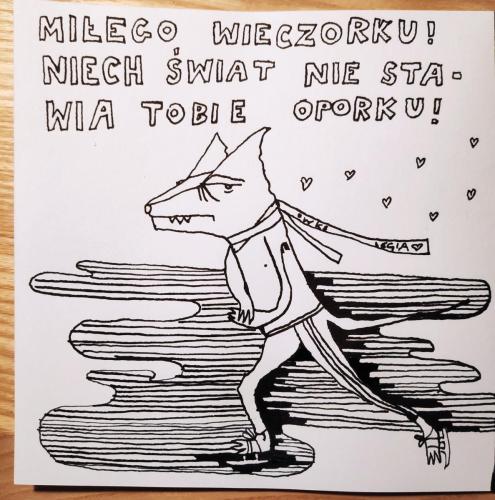 MIŁEGO WIECZORKU!
NIECH ŚWIAT NIE STA-
WIA TOBIE OPORKU!
LEGIA